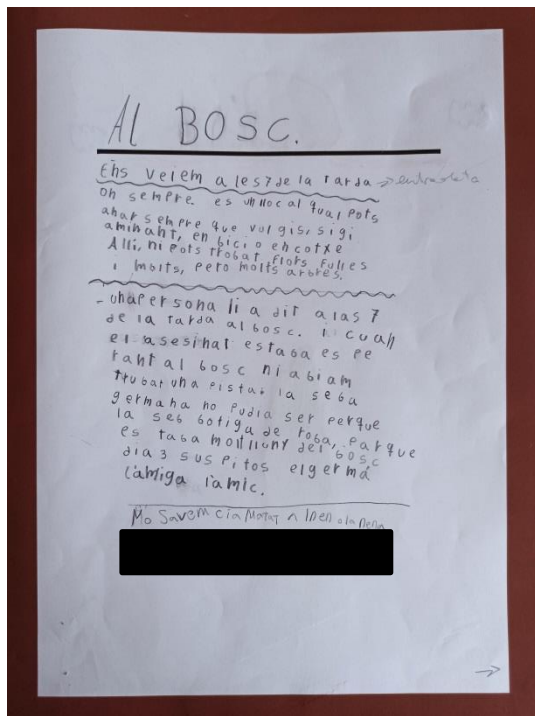 Al BOSC.
Ens veiem a les 7 de la tarda →
on sempre. es un lloc al qual pots
anar sempre que vulgis, sigi
aminant, en bici o en cotxe
Alli, ni pots trobat flors fulles
i molts, pero molts arbres.
- una persona li a dit a las 7
de la tarda al bosc. i cuan
el asesinat estaba espe
rant al bosc ni abiam
trubat una pista. la seba
germana no pudia ser perque
la seb botiga de roba, parque
es taba molt lluny del bosc
dia 3 suspitos el germá
l'amiga l'amic.
No Savem cia Matat A lnen o la nena
→